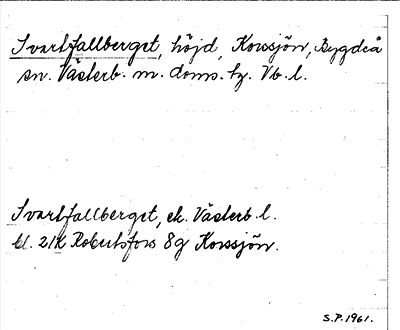 Svartfallberget, höjd, Korssjön, Bygdeå
sn. Västerb. m. doms. tg. Vb. l.
Svartfallberget, ek. Västerb. l.
bl. 21K Robertsfors 8g Korssjön.
S.P. 1961.